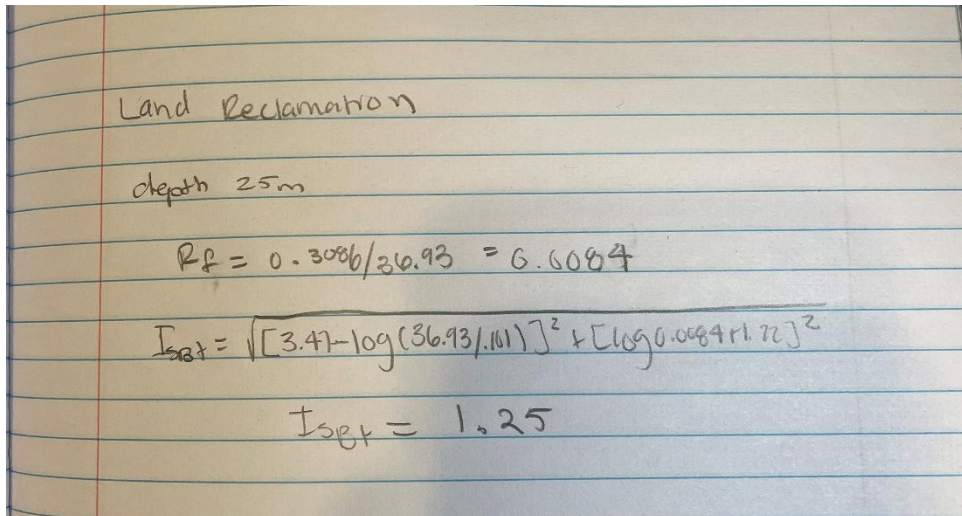 Land Reclamation
depth 25m
Rf = 0.3086/36.93 = 0.0084
Isbt = √[3.47-log(36.93/.101)]² + [log0.0084+1.22]²
IsBt = 1.25